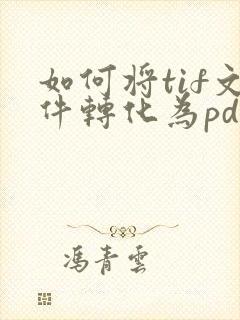 如何将tif文
件轉化為pd
馮青雲